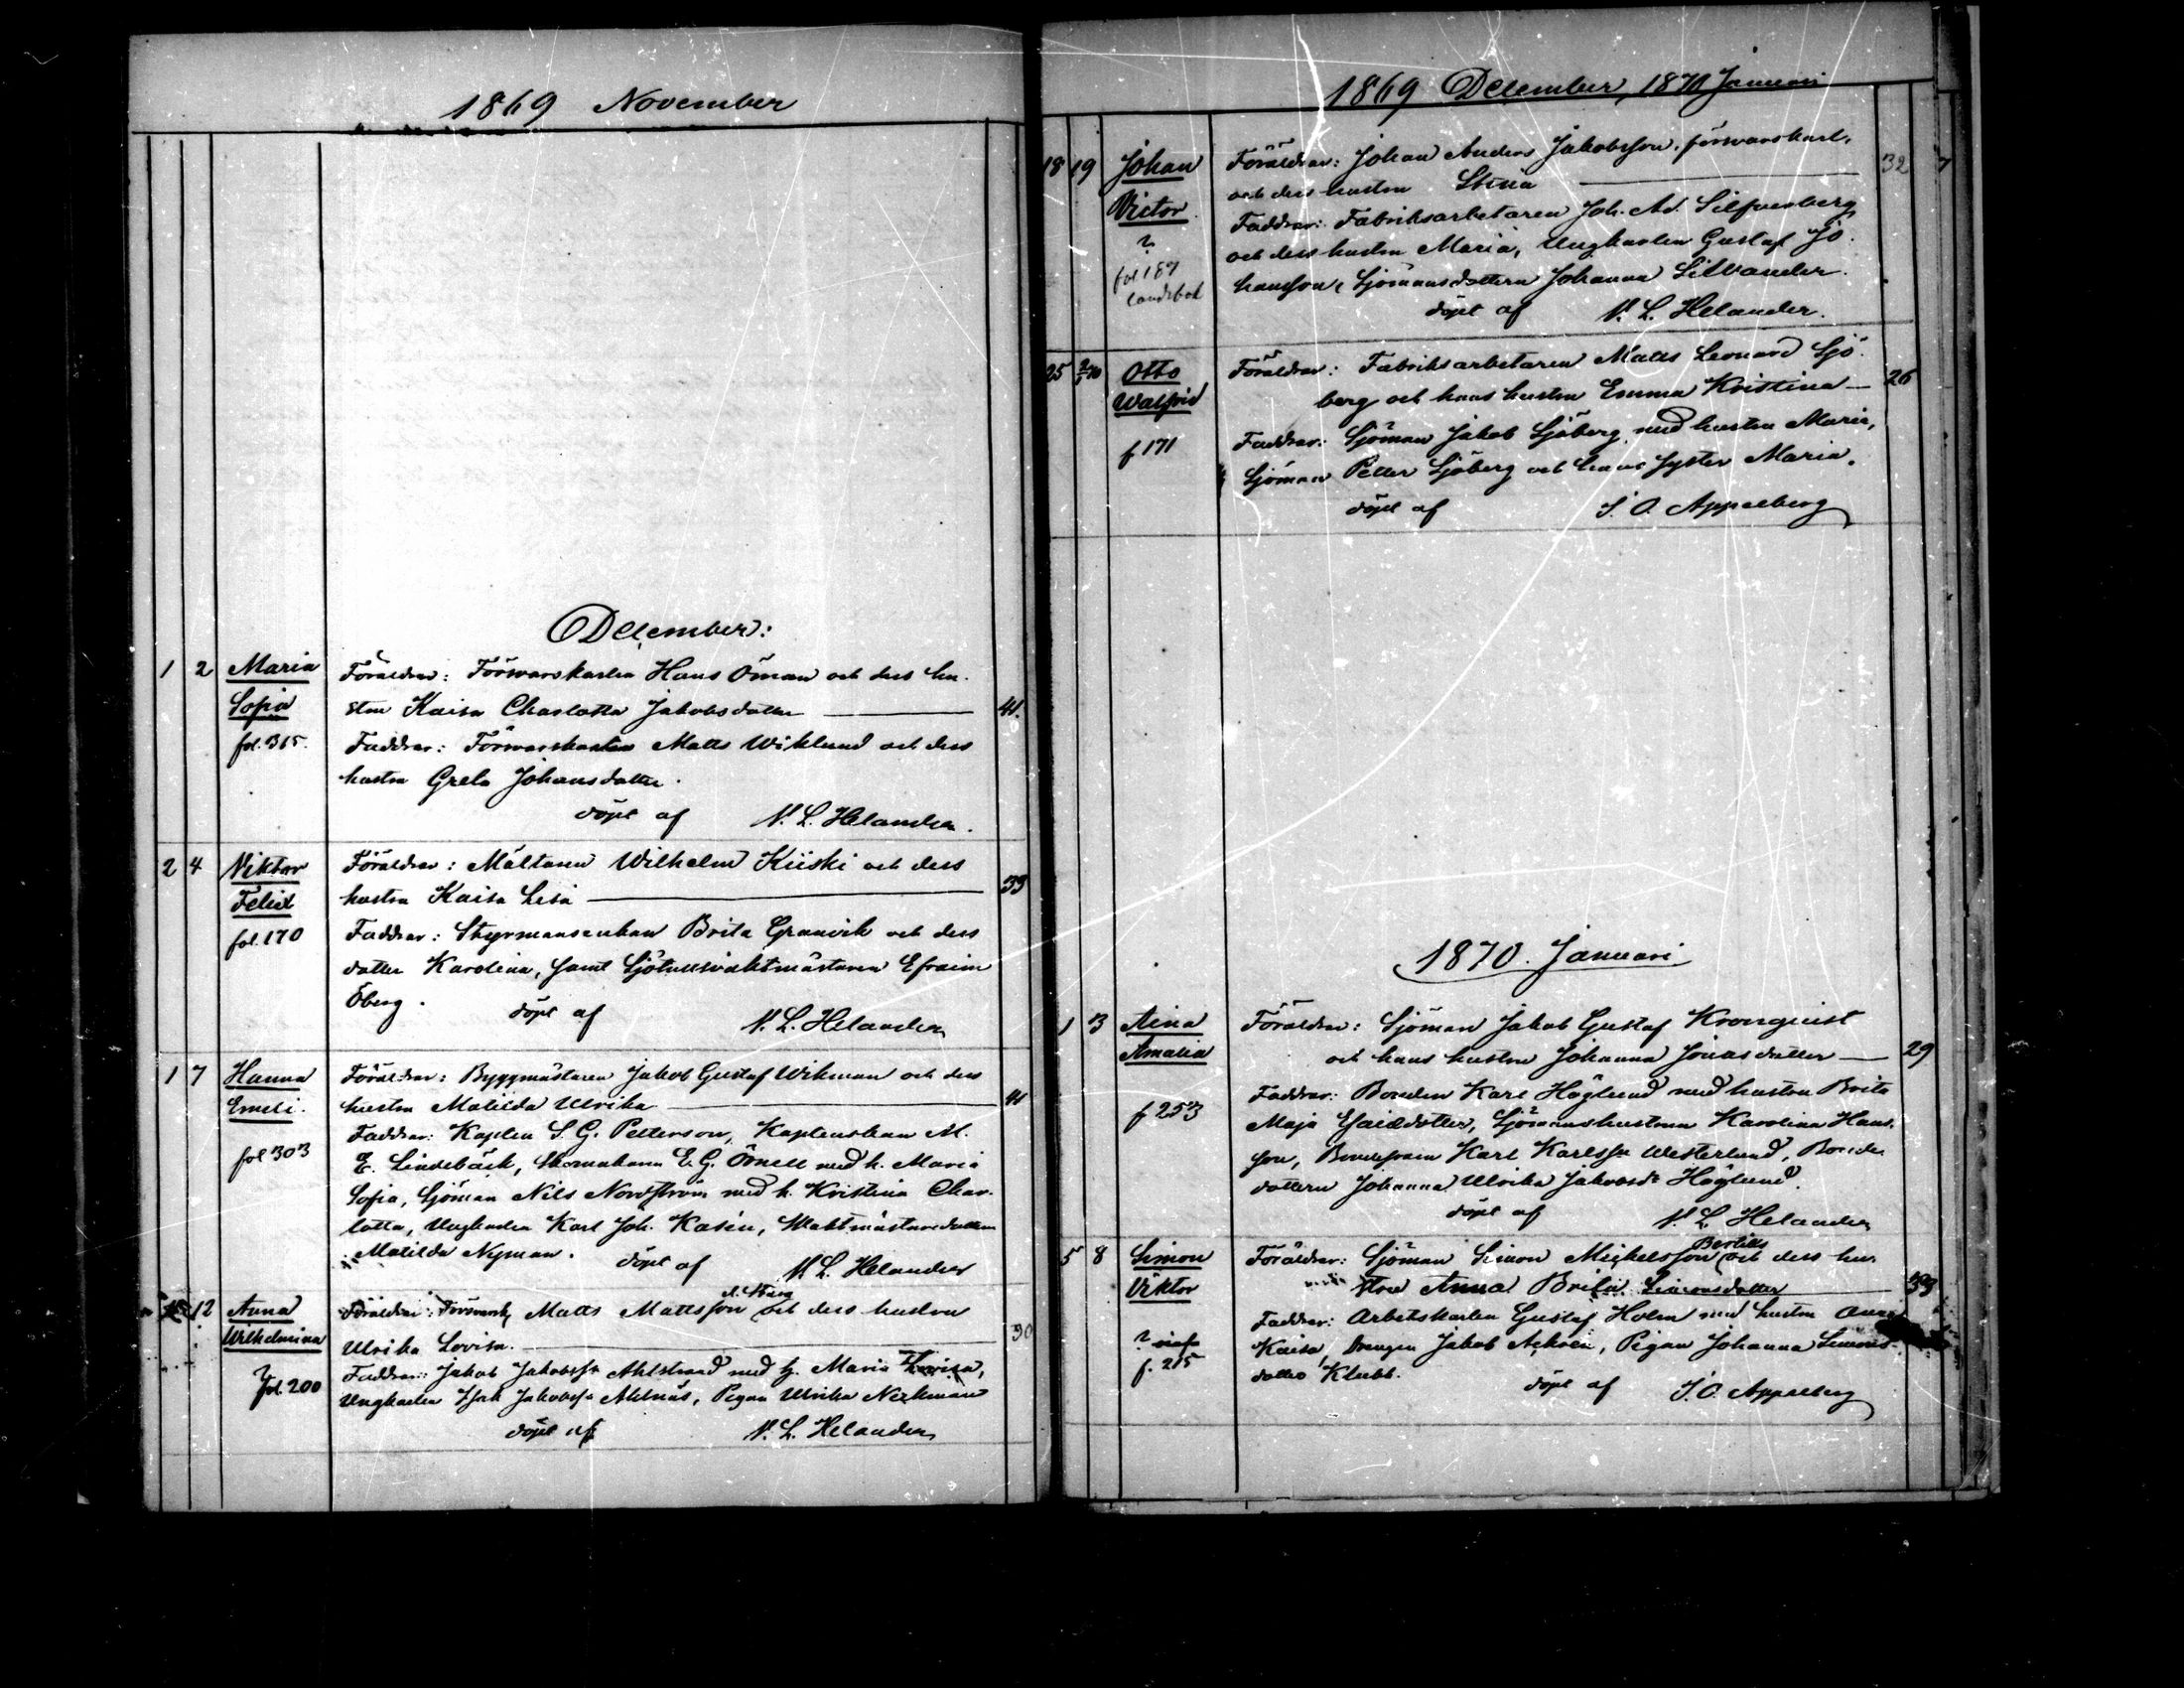 1869 November
December:
1 2 Maria Föräldrar: Förswarskarlen Hans Öman och dess hu-
Sofia stru Kaisa Charlotta Jakobsdotter 41.
fol. 315. Faddrar: Förswarskarlen Matts Wiklund och dess
hustru Greta Johansdotter.
döpt af N. L. Helander.
2 4 Viktor Föräldrar: Mältaren Wilhelm Kiiski och dess
Felix hustru Kaisa Lisa 33
fol. 170 Faddrar: Styrmansenkan Brita Granvik och dess
dotter Karolina, samt Sjötullsvaktmästaren Efraim
Öberg. döpt af N. L. Helander
1 7 Hanna Föräldrar: Byggmästaren Jakob Gustaf Wikman och dess
Emeli. hustru Matilda Ulrika 41
Faddrar: Kapten S. G. Petterson, Kaptenskan M.
fol 303 E. Lindebäck, Skomakaren E. G. Örnell med h. Maria
Sofia, Sjöman Nils Nordström med h. Kristina Char-
lotta, Ungkarlen Karl Joh. Kasén, Waktmästaredottern
Matilda Nyman. döpt af N. L. Helander
12 Anna Föräldrar: Förswarsk, Matts Mattsson och dess hustru
Wilhelmina Ulrika Lovisa. 30
? fol. 200 Faddrar: Jakob Jakobss. Ahlstrand med h. Maria Lovisa,
Ungkarlen Isak Jakobss. Ahlnäs, Pigan Ulrika Nickman
döpt af N. L. Helander
1869 December, 1870 Januari
18 19 Johan Föräldrar: Johan Anders Jakobsson, förswarskarl,
Victor. och dess hustru Stina 32 7
? Faddrar: Fabriksarbetaren Joh. Ad. Silfverberg
och dess hustru Maria, Ungkarlen Gustaf Jo-
fol 187 hansson, Sjömansdottern Johanna Silvander.
landsbok
döpt af N. L. Helander.
25 2/1 70 Otto Föräldrar: Fabriksarbetaren Matts Leonard Sjö-
Walfrid berg och hans hustru Emma Kristina 26
f 171 Faddrar: Sjöman Jakob Sjöberg med hustru Maria,
Sjöman Petter Sjöberg och hans syster Maria.
döpt af S. O. Appelberg
1870. Januari
1 3 Aina Föräldrar: Sjöman Jakob Gustaf Kronqvist
Amalia och hans hustru Johanna Jonasdotter 29
Faddrar: Bonden Karl Höglund med hustru Brita
f 253 Maja Esaiädotter, Sjömanshustrun Karolina Hans-
son, Bondesonen Karl Karlsson Westerlund, Bonde-
dottern Johanna Ulrika Jakobsdr Höglund.
döpt af N. L. Helander
Bertills
5 8 Simon Föräldrar: Sjöman Simon Mickelsson och dess hu-
Viktor stru Anna Brita Simonsdotter 33
Faddrar: Arbetskarlen Gustaf Holm med hustru Anna
? Kaisa, Drengen Jakob Achrén, Pigan Johanna Simons-
f. 215 dotter Klubb.
döpt af S. O. Appelberg